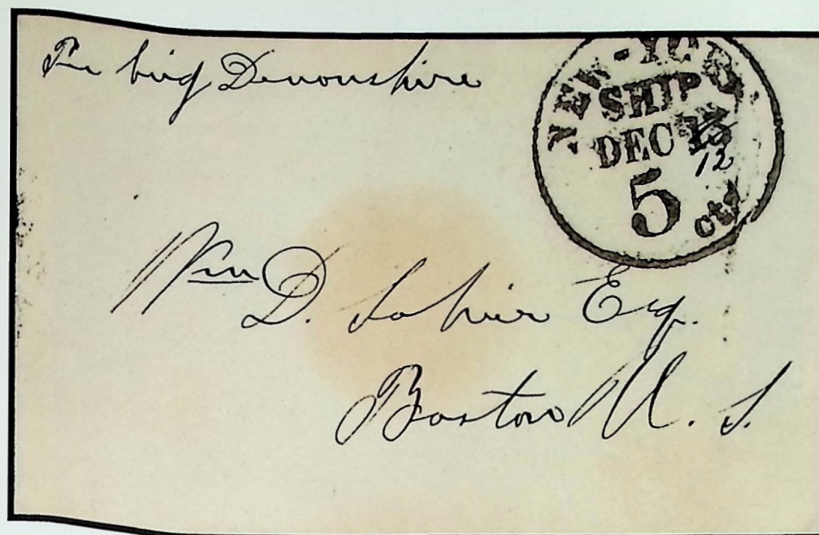 Per brig Devonshire
NEW-YORK
SHIP
DEC 13
12
5 cts
Wm D. Sohier Esq.
Boston U. S.